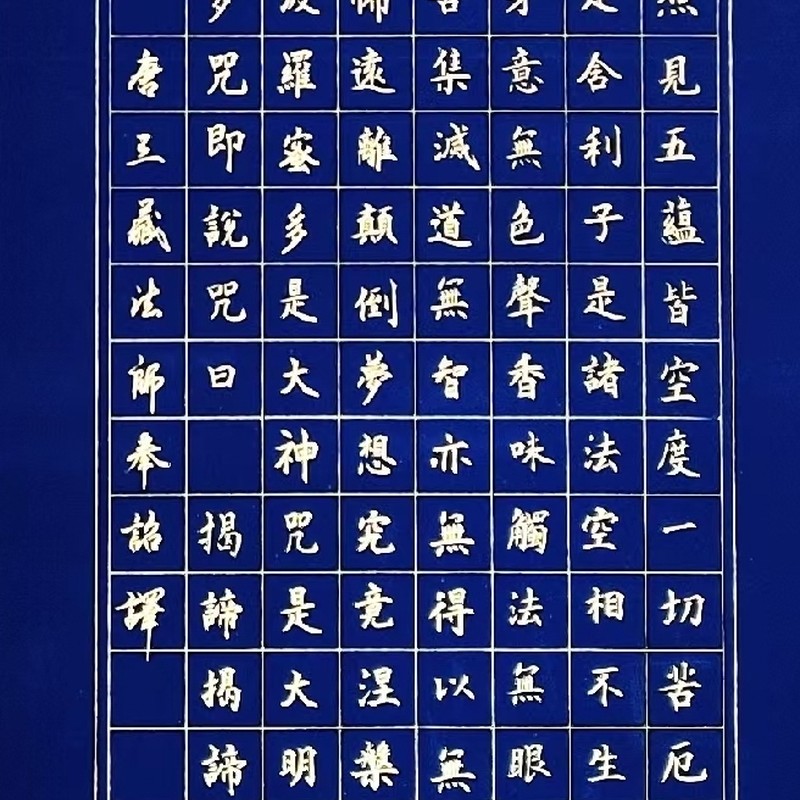 照見五蘊皆空度一切苦厄
是舍利子是諸法空相不生
身意無色聲香味觸法無眼
苦集滅道無智亦無得以無
怖遠離顛倒夢想究竟涅槃
般羅蜜多是大神咒是大明
多咒即說咒曰 揭諦揭諦
唐三藏法師奉詔譯